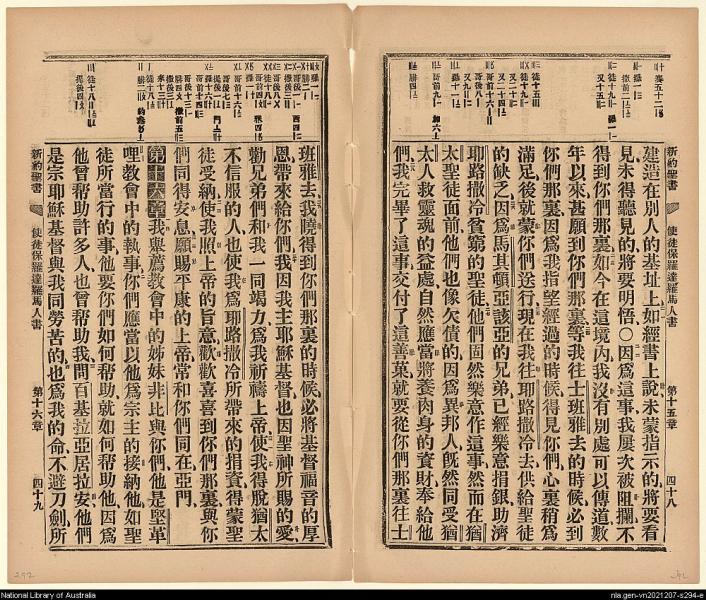 建造在別人的基址上如經書上說未蒙指示的將要看
見未得聽見的將要明悟〇因爲這事我屢次被阻攔不
得到你們那裏如今在這境內我沒有別處可以傳道數
年以來甚願到你們那裏等我往士班雅去的時候必到
你們那裏因爲我指望經過的時候得見你們心裏稍爲
滿足後就蒙你們送行現在我往耶路撒冷去供給聖徒
的缺乏因爲馬其頓亞該亞的兄弟已經樂意捐銀助濟
耶路撒冷貧窮的聖徒他們固然樂意作這事然而在猶
太聖徒面前他們也像欠債的因爲異邦人旣然同受猶
太人救靈魂的益處自然應當將養肉身的資財奉給他
們我完畢了這事交付了這善菓就要從你們那裏往士
新約聖書
使徒保羅達羅馬人書
第十五章
四十八
班雅去我曉得到你們那裏的時候必將基督福音的厚
恩帶來給你們我因我主耶穌基督也因聖神所賜的愛
勸兄弟們和我一同竭力爲我祈禱上帝使我得脫猶太
不信服的人也使我爲耶路撒冷所帶來的捐資得蒙聖
徒受納使我照上帝的旨意歡歡喜喜到你們那裏與你
們同得安息願賜平康的上帝常和你們同在亞門
第十六章我舉薦教會中的姊妹非比與你們他是堅革
哩教會中的執事你們應當以他爲宗主的接納他如聖
徒所當行的事他要你們如何幫助就如何幫助他因爲
他曾幫助許多人也曾幫助我問百基拉亞居拉安他們
是宗耶穌基督與我同勞苦的也爲我的命不避刀劍所
新約聖書
使徒保羅達羅馬人書
第十六章
四十九
National Library of Australia
nla.gen-vn2021207-s294-e